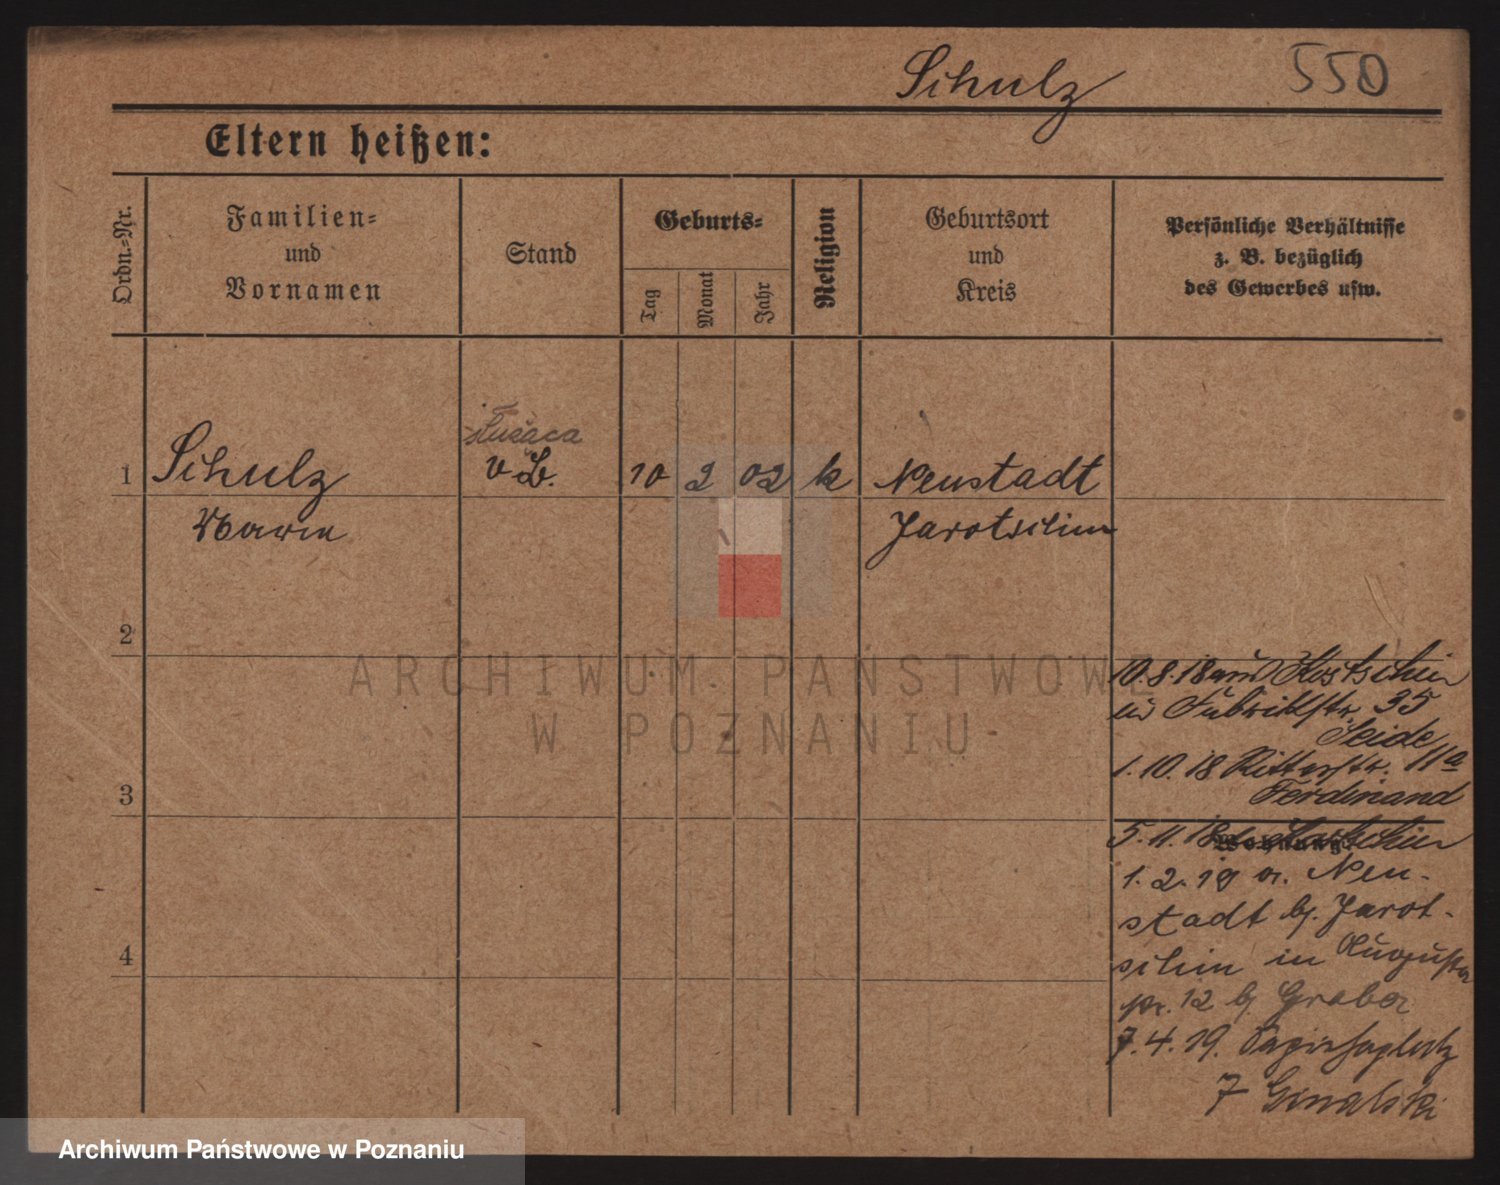 Schulz 550
Eltern heißen:
Ordn.=Nr.
Familien=
und
Vornamen
Stand
Geburts=
Tag
Monat
Jahr
Religion
Geburtsort
und
Kreis
Persönliche Verhältnisse
z. B. bezüglich
des Gewerbes usw.
służąca
1 Schulz v L. 10 2 02 k Neustadt
Marie Jarotschin
2
ARCHIWUM PAŃSTWOWE
W POZNANIU
10.8.18 aus Kostschin
in 35
Seide
1.10.18 Ritterstr. 11a
3 Ferdinand
Wohnung:
5.11.18 Kostschin
1.2.19 a. Neu-
stadt b. Jarot-
4 schin in Augusta
str. 12 b Graber
7.4.19.
7
Archiwum Państwowe w Poznaniu